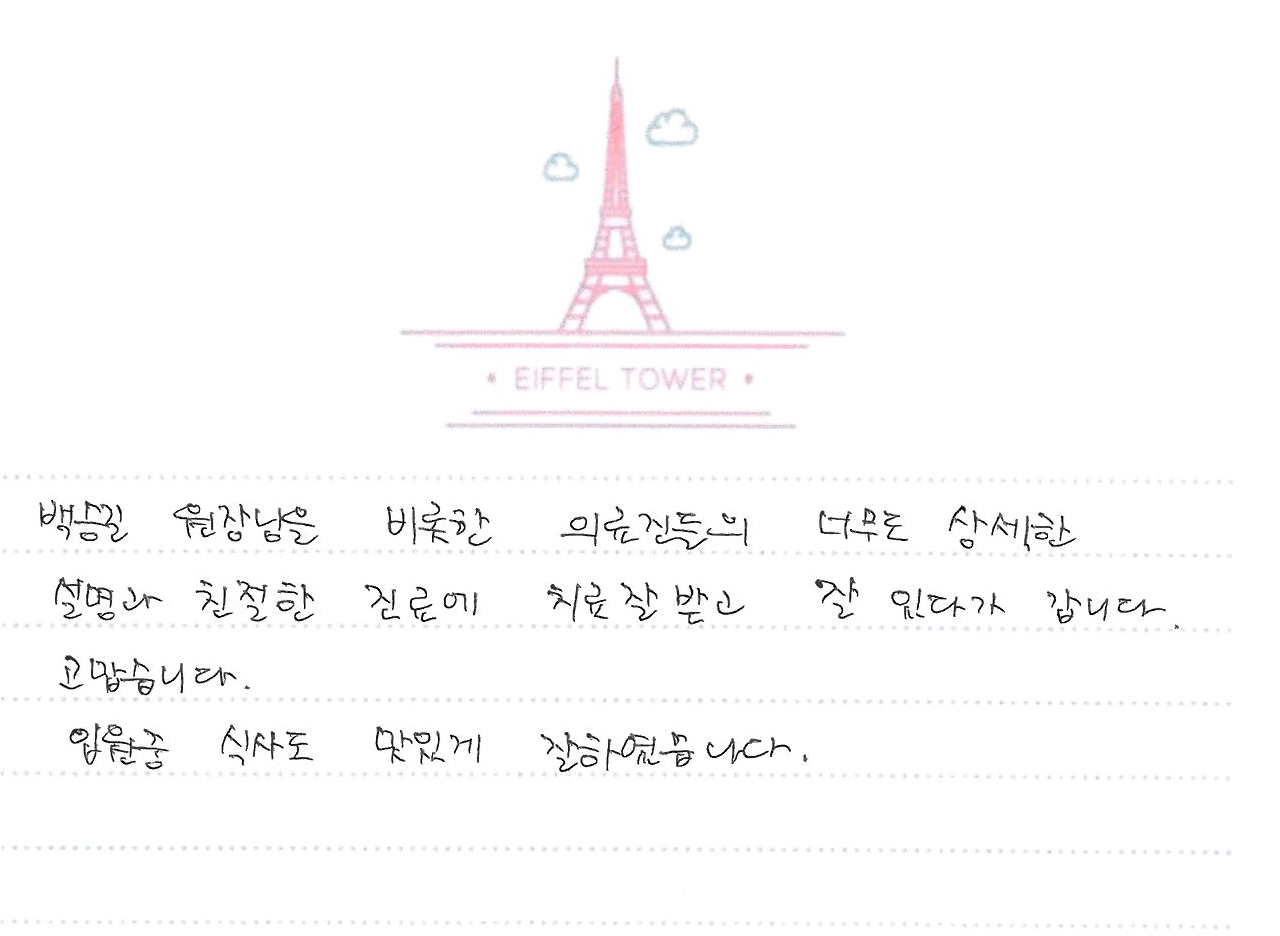 • EIFFEL TOWER •
백승길 원장님을 비롯한 의료진들의 너무도 상세한
설명과 친절한 진료에 치료 잘 받고 잘 있다가 갑니다.
고맙습니다.
입원중 식사도 맛있게 잘하였습니다.